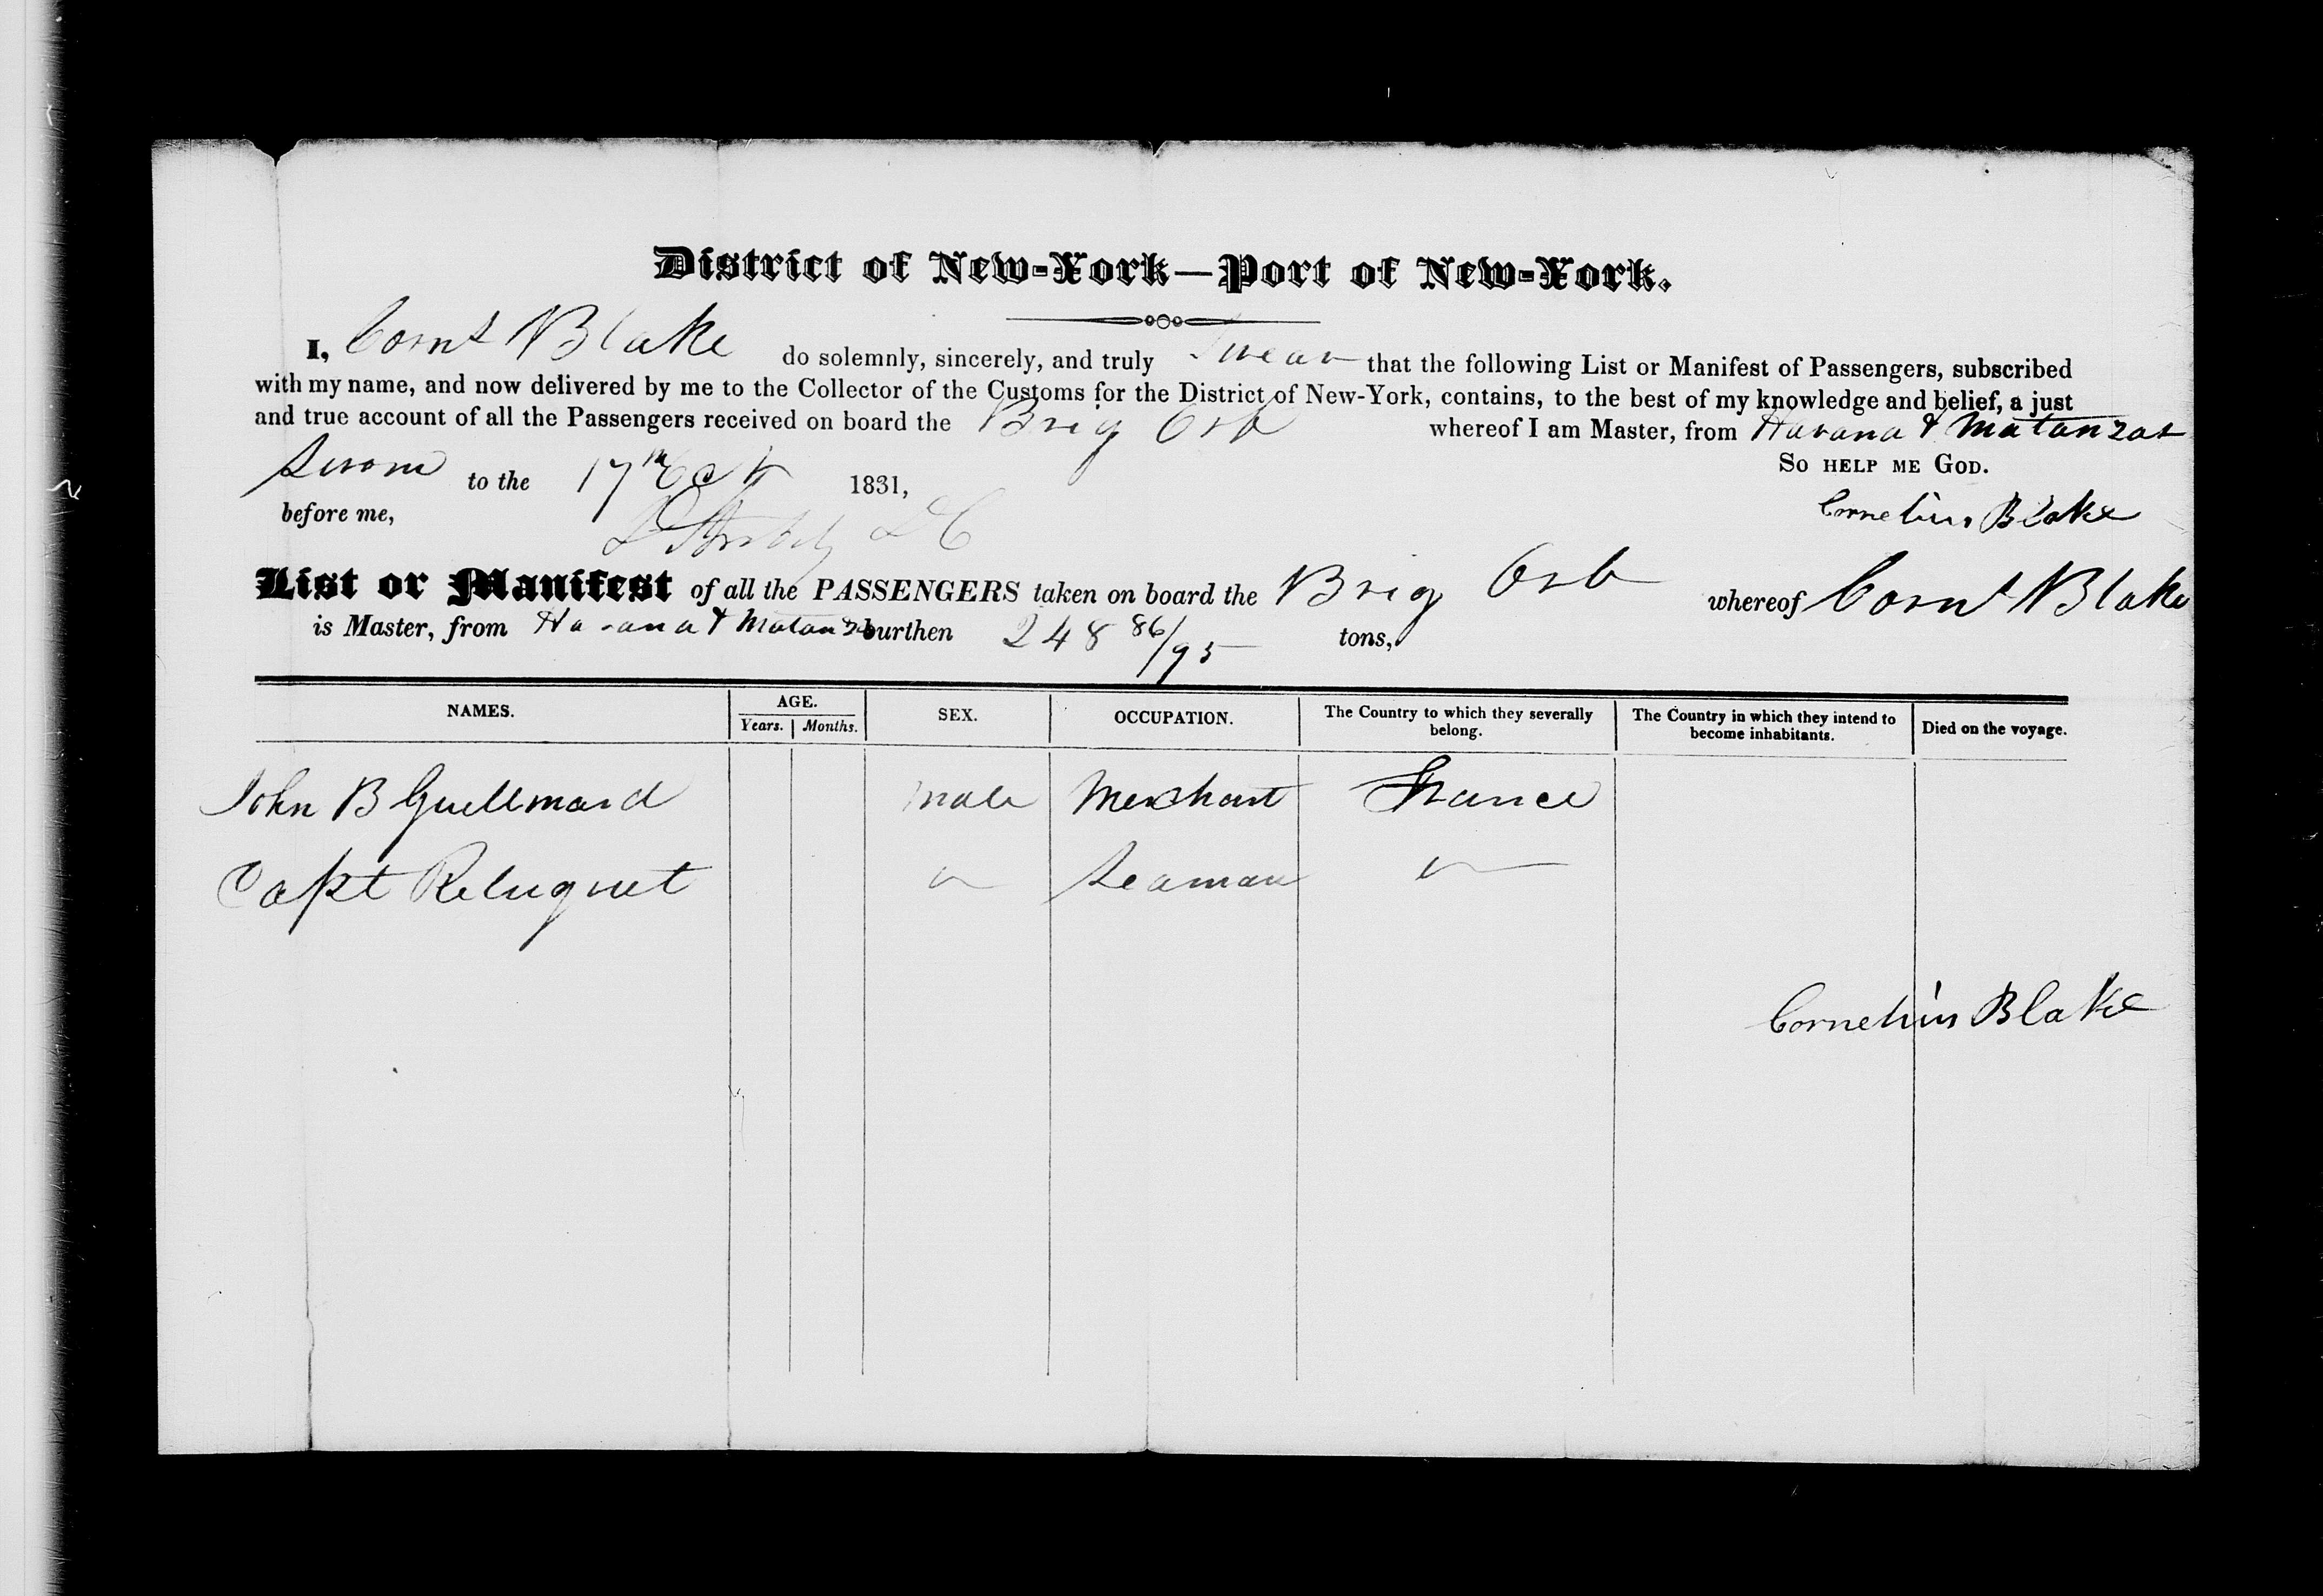 District of New-York—Port of New-York.
I, Corns Blake do solemnly, sincerely, and truly Swear that the following List or Manifest of Passengers, subscribed
with my name, and now delivered by me to the Collector of the Customs for the District of New-York, contains, to the best of my knowledge and belief, a just
and true account of all the Passengers received on board the Brig Orb whereof I am Master, from Havana & Matanzas
Sworn to the 17th Oct 1831, So help me God.
before me, Cornelius Blake
List or Manifest of all the PASSENGERS taken on board the Brig Orb whereof Corns Blake
is Master, from Havana & Matanzas burthen 248 86/95 tons,
NAMES. AGE. Years. Months. SEX. OCCUPATION. The Country to which they severally belong. The Country in which they intend to become inhabitants. Died on the voyage.
John B Guellmard male Merchant France
Capt Seaman
Cornelius Blake